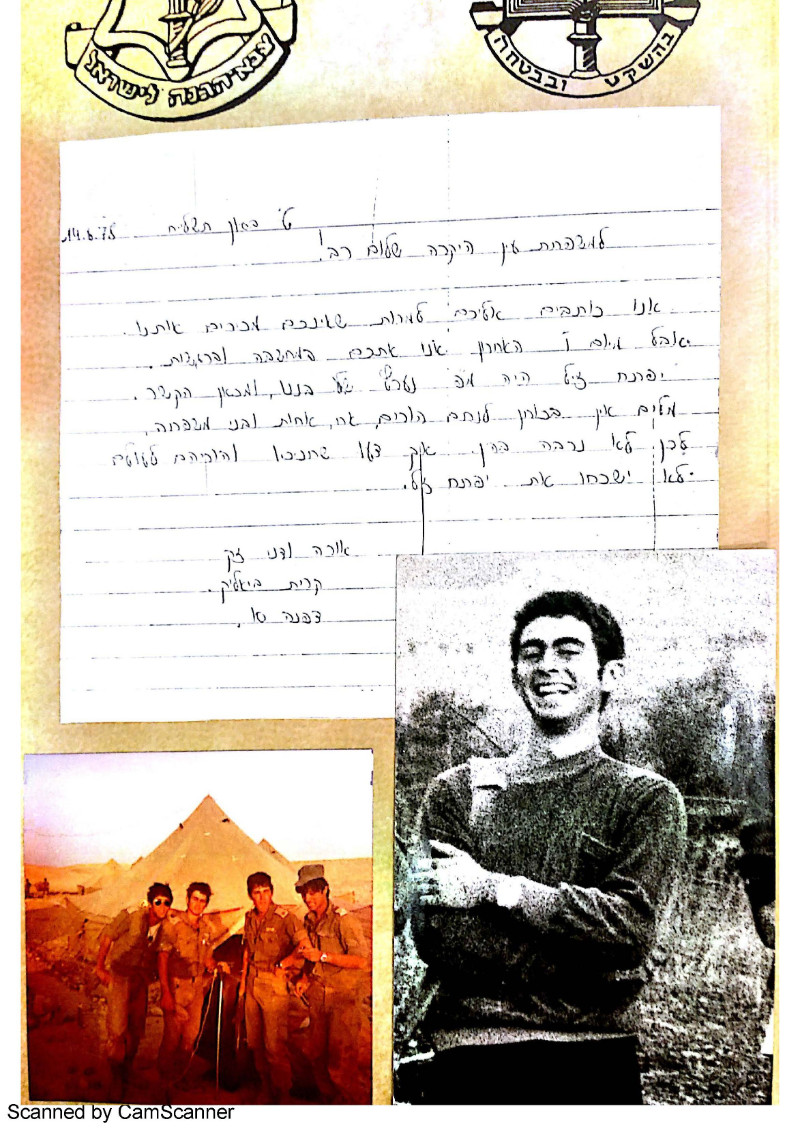 צבא הגנה לישראל
בהשקט ובבטחה
ט' בסון תשל"ח 14.6.78
למשפחת עין היקרה שלום רב!
אנו כותבים אליכם למרות שאינכם מכירים אותנו.
אבל מיום ו' האחרון אנו אתכם במחשבה וברגשות.
יפתח ז"ל היה מפ נערץ של בננו, ומכאן הקשר.
מלים אין בכוחן לנחם הורים, אח, אחות ובני משפחה,
לכן לא נרבה בהן. אך דעו שחניכיו והוריהם לעולם
לא ישכחו את יפתח ז"ל.
אורה ודני זק
קרית ביאליק.
דפנה
Scanned by CamScanner